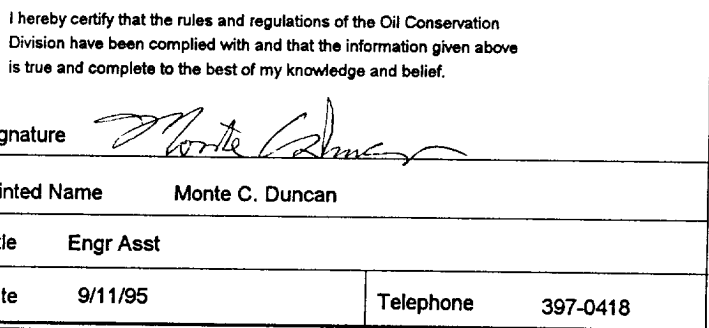 I hereby certify that the rules and regulations of the Oil Conservation
Division have been complied with and that the information given above
is true and complete to the best of my knowledge and belief.
gnature Monte C Duncan
inted Name Monte C. Duncan
tle Engr Asst
te 9/11/95 Telephone 397-0418